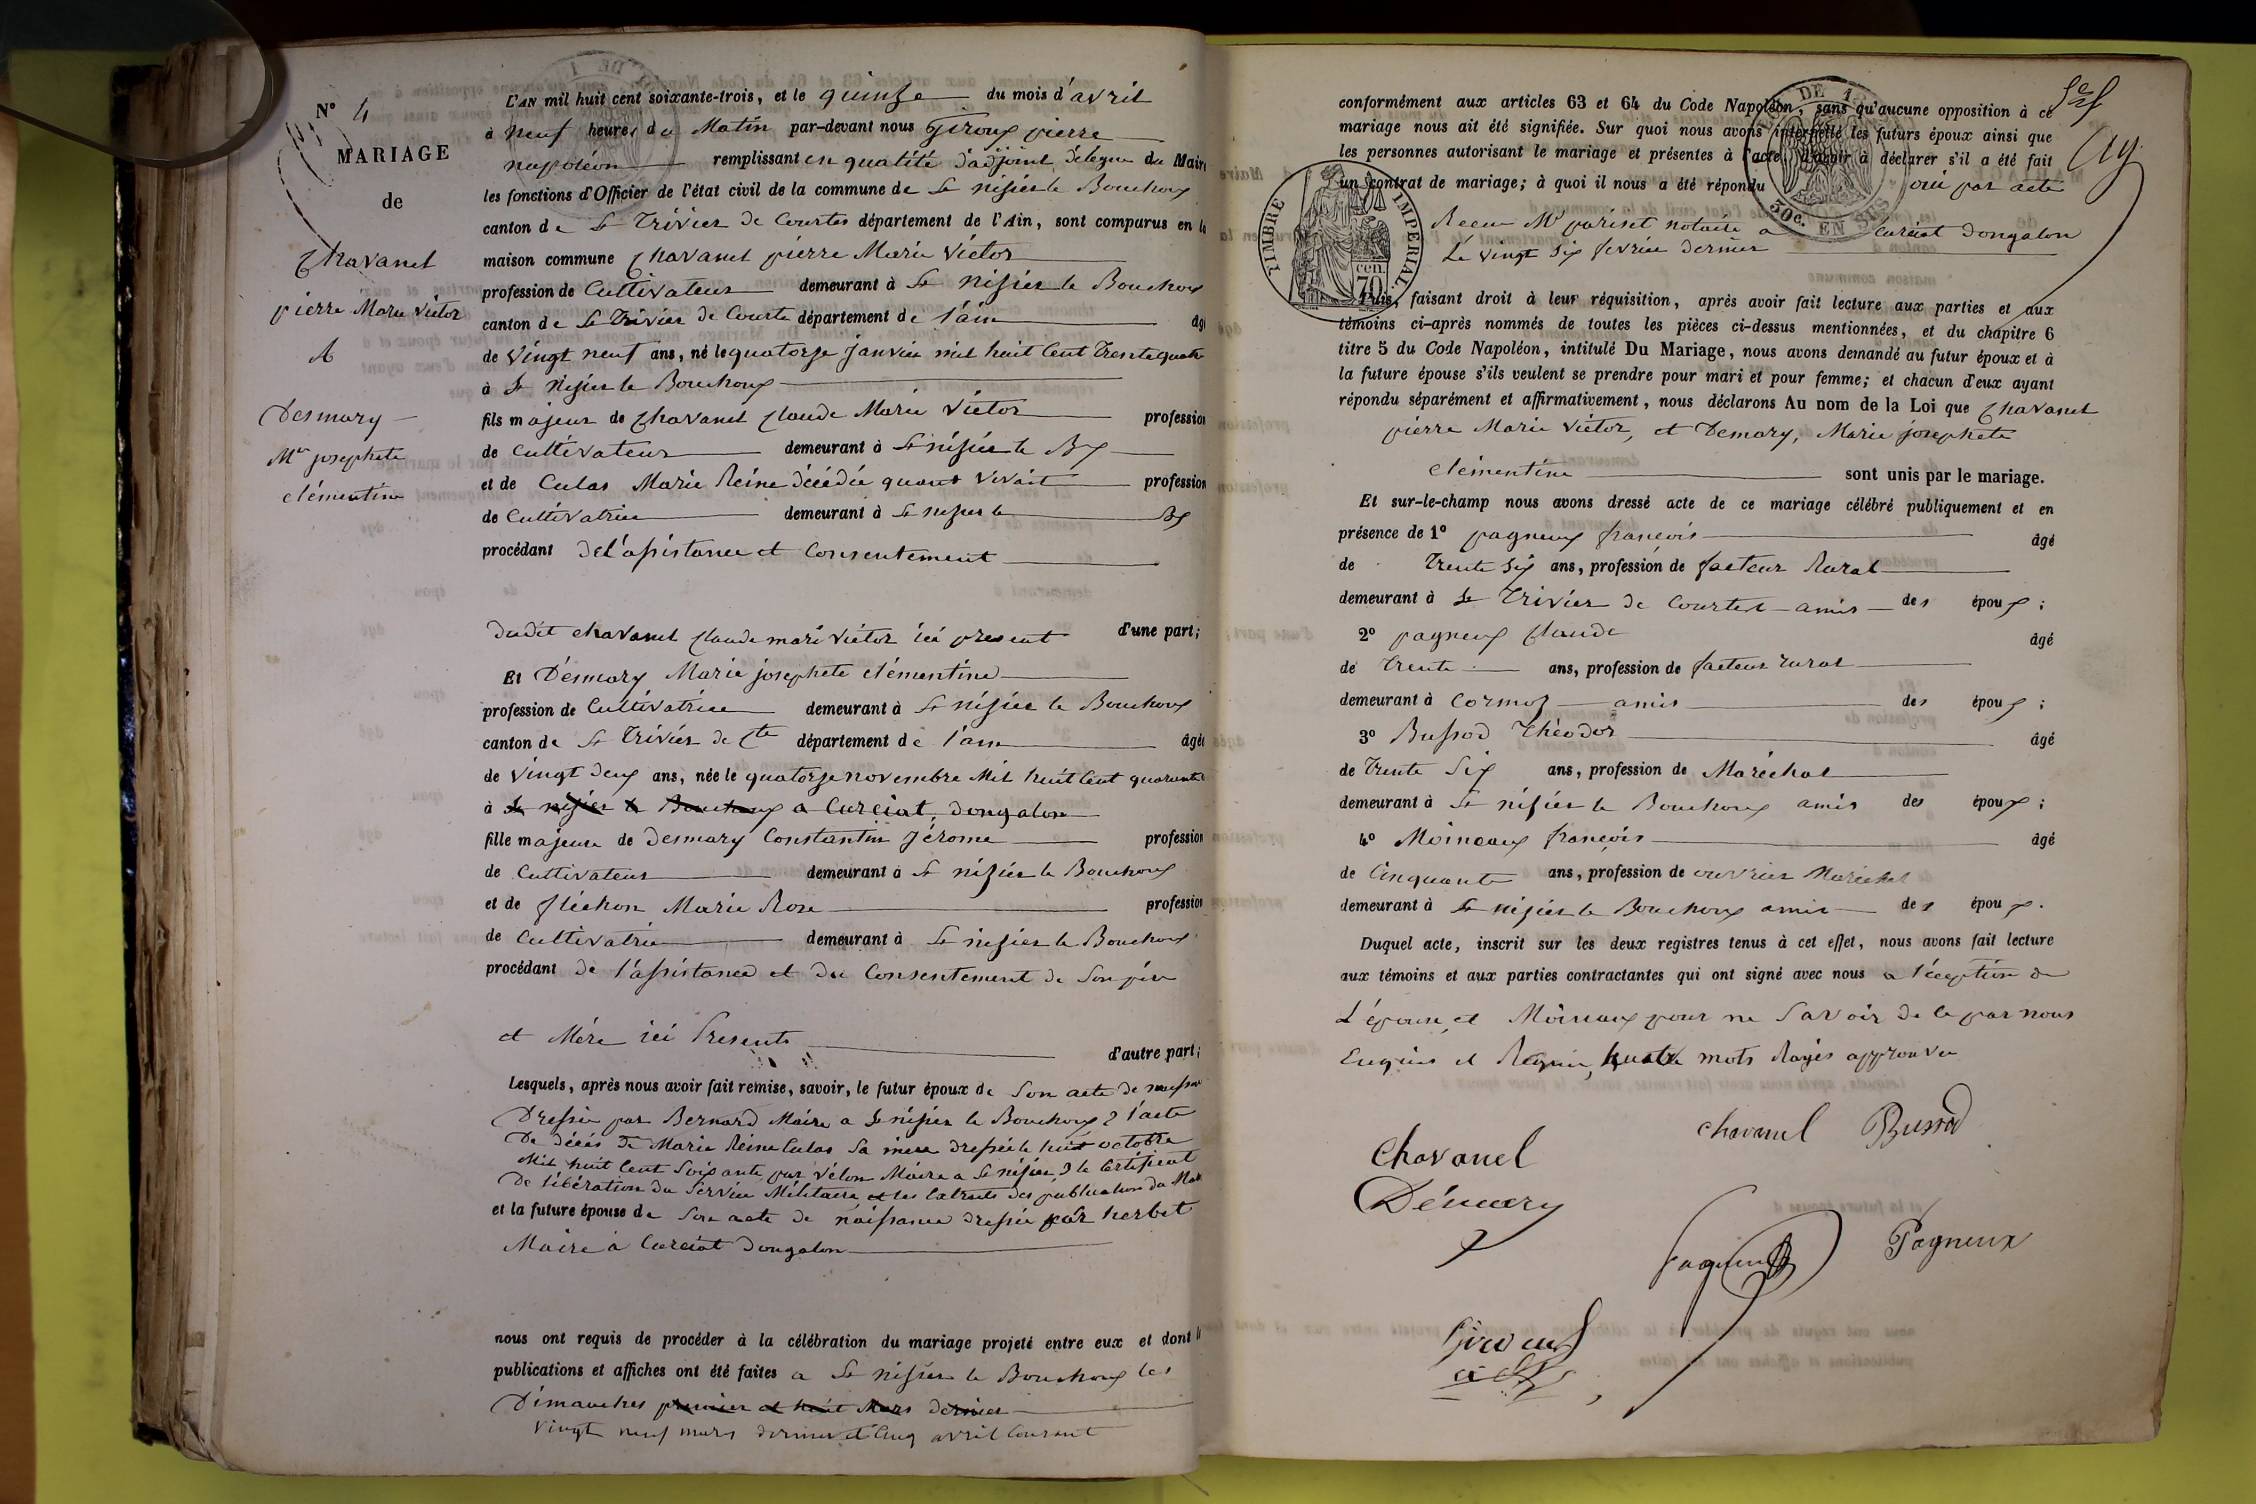 N° 4
MARIAGE
de
Chavanel
pierre Marie Victor
&
Desmary
Mie josephete
clémentine
L'AN mil huit cent soixante-trois, et le quinze du mois d'avril
à neuf heures du Matin par-devant nous Giroux pierre
napoléon remplissant en qualité d'adjoint délégue du Maire
les fonctions d'Officier de l'état civil de la commune de St nisier le Bouchoux
canton de St Trivier de Courtes département de l'Ain, sont comparus en la
maison commune Chavanel pierre Marie Victor
profession de Cultivateur demeurant à St Nisier le Bouchoux
canton de St Trivier de Courte département de l'ain âgé
de Vingt neuf ans, né le quatorze Janvier mil huit Cent Trente quatre
à St Nisier le Bouchoux
fils majeur de Chavanel Claude Marie Victor profession
de Cultivateur demeurant à St nisier le Bx
et de Culas Marie Reine décédée quant vivait profession
de Cultivatrice demeurant à St nisier le Bx
procédant de L'assistance et Consentement
dudit chavanel Claude mari Victor ici present d'une part;
Et Démary Marie josephete clémentine
profession de Cultivatrice demeurant à St nisier le Bouchoux
canton de St Trivier de Cte département de l'ain âgée
de Vingt deux ans, née le quatorze novembre Mil huit Cent quarante
à St nisier le Bouchoux a Curciat, dongalon
fille majeure de Desmary Constantin Jérome profession
de Cultivateur demeurant à St nisier le Bouchoux
et de fléchon Marie Rose profession
de Cultivatrice demeurant à St nisier le Bouchoux
procédant de l'assistance et du Consentement de Son père
et Mère ici Presents d'autre part;
Lesquels, après nous avoir fait remise, savoir, le futur époux de Son acte de naissance
Dressée par Bernard Maire a St nisier le Bouchoux 2 l'acte
De décés de Marie Reine Culas Sa mere dressée le huit octobre
Mil huit Cent Soixante par Vélon Maire a St nisier, 3 le Certificat
De libération du Service Militaire et les Extraits des publication du Mar
et la future épouse de Son acte de naissance dressée par herbet
Maire à Curciat Dongalon
nous ont requis de procéder à la célébration du mariage projeté entre eux et dont
publications et affiches ont été faites a St nisier le Bouchoux les
Dimanches premier et huit Mars dernier
Vingt neuf mars dernier et Cinq avril Courant
conformément aux articles 63 et 64 du Code Napoléon, sans qu'aucune opposition à ce
mariage nous ait été signifiée. Sur quoi nous avons interpellé les futurs époux ainsi que
les personnes autorisant le mariage et présentes à l'acte, d'avoir à déclarer s'il a été fait
un contrat de mariage; à quoi il nous a été répondu oui par acte
Recu Mr pariset notaire a Curciat Dongalon
Le vingt Six fevrier dernier
TIMBRE IMPERIAL
70 cen.
30c. EN SUS
Puis, faisant droit à leur réquisition, après avoir fait lecture aux parties et aux
témoins ci-après nommés de toutes les pièces ci-dessus mentionnées, et du chapitre 6
titre 5 du Code Napoléon, intitulé Du Mariage, nous avons demandé au futur époux et à
la future épouse s'ils veulent se prendre pour mari et pour femme; et chacun d'eux ayant
répondu séparément et affirmativement, nous déclarons Au nom de la Loi que Chavanel
pierre Marie Victor, et Demary, Marie josephete
clémentine sont unis par le mariage.
Et sur-le-champ nous avons dressé acte de ce mariage célébré publiquement et en
présence de 1° pagneux françois âgé
de Trente Six ans, profession de facteur Rural
demeurant à St Trivier de Courtes amis des époux;
2° pagneux Claude âgé
de Trente ans, profession de facteur rural
demeurant à Cormoz amis des époux;
3° Bussod Théodor âgé
de Trente Six ans, profession de Maréchal
demeurant à St nisier le Bouchoux amis des époux;
4° Moineaux françois âgé
de Cinquante ans, profession de ouvrier Maréchal
demeurant à St nisier le Bouchoux amis des époux.
Duquel acte, inscrit sur les deux registres tenus à cet effet, nous avons fait lecture
aux témoins et aux parties contractantes qui ont signé avec nous a l'éception de
L'épouse, et Moineaux pour ne Savoir de ce par nous
Enquis et Requis, quatre mots Rayés approuvés
Chavanel chavanel Bussod
Démary
Pagneux Pagneux
Giroux